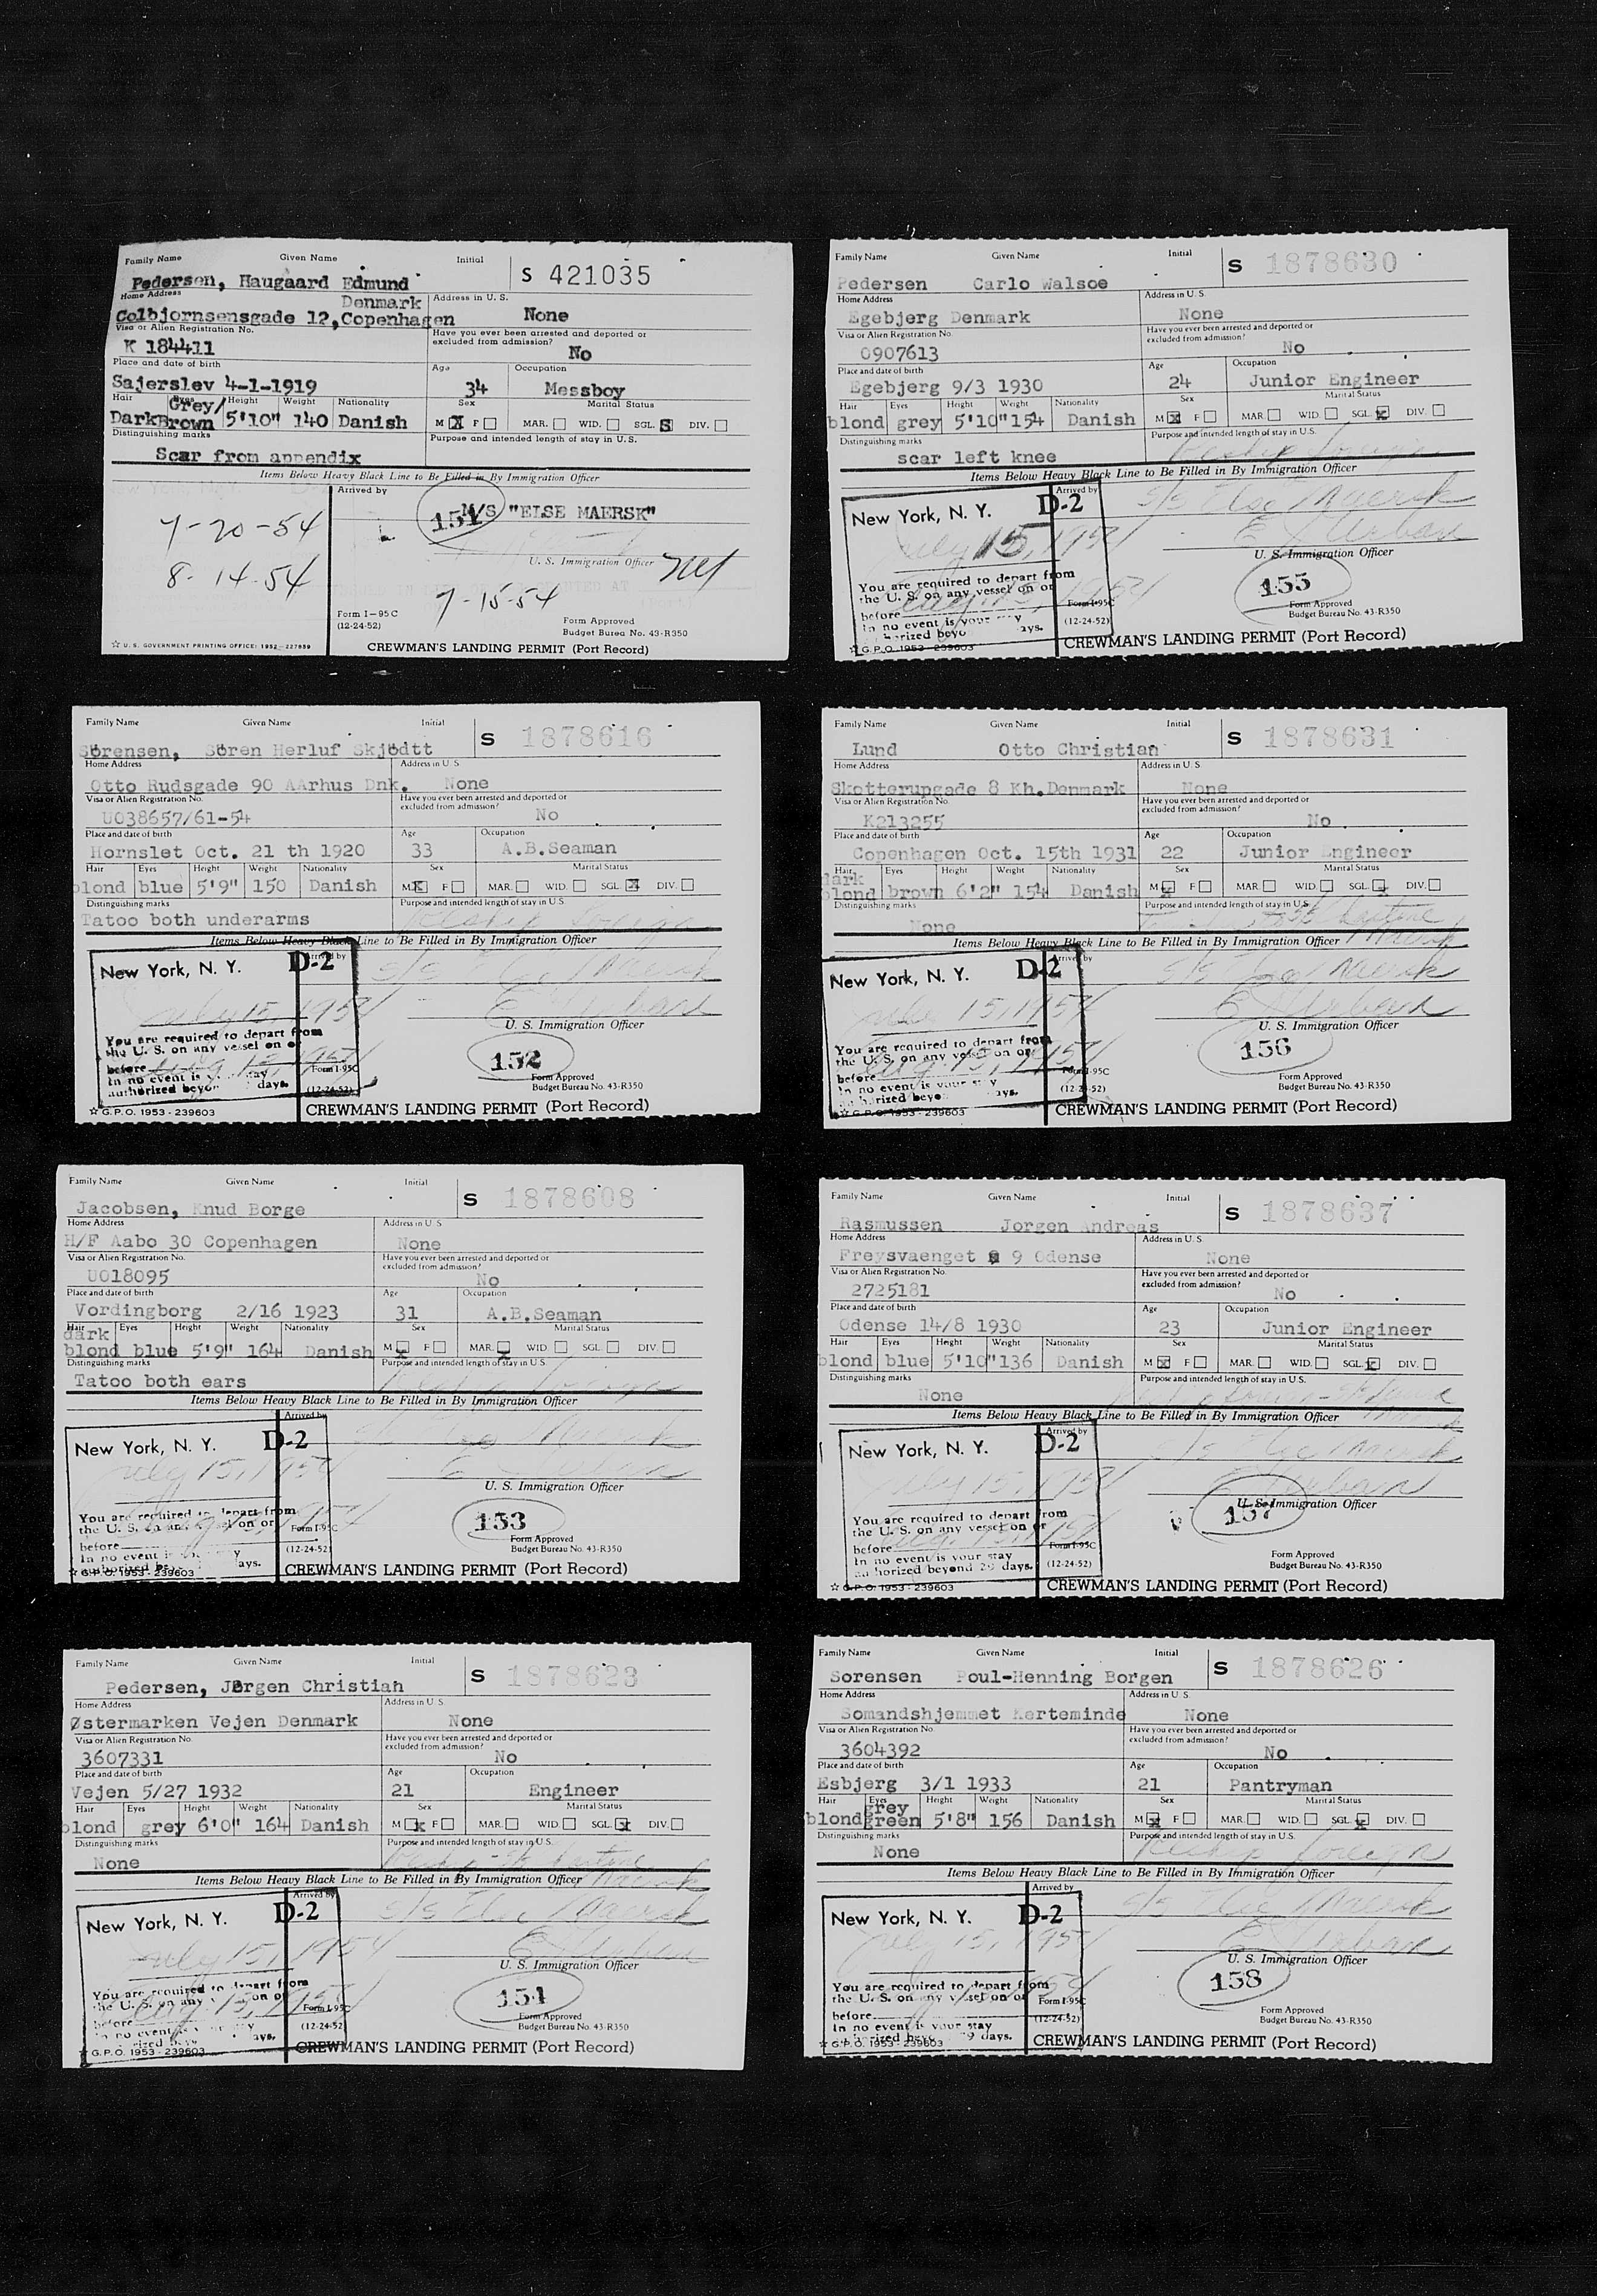 Family Name Given Name Initial
S 421035
Pedersen, Haugaard Edmund
Home Address Denmark Address in U. S.
Colbjornsensgade 12, Copenhagen None
Visa or Alien Registration No. Have you ever been arrested and deported or excluded from admission?
K 184411 No
Place and date of birth Age Occupation
Sajerslev 4-1-1919 34 Messboy
Hair Eyes Height Weight Nationality Sex Marital Status
Dark Grey/Brown 5'10" 140 Danish M X F MAR. WID. SGL. S DIV.
Distinguishing marks Purpose and intended length of stay in U.S.
Scar from appendix
Items Below Heavy Black Line to Be Filled in By Immigration Officer
Arrived by
151 M/S "ELSE MAERSK"
7-20-54
U. S. Immigration Officer
8-14-54
7-15-54
Form I-95C
(12-24-52)
Form Approved
Budget Bureau No. 43-R350
☆ U. S. GOVERNMENT PRINTING OFFICE: 1952-227859
CREWMAN'S LANDING PERMIT (Port Record)
Family Name Given Name Initial
S 1878630
Pedersen Carlo Walsoe
Home Address Address in U.S.
Egebjerg Denmark None
Visa or Alien Registration No. Have you ever been arrested and deported or excluded from admission?
0907613 No
Place and date of birth Age Occupation
Egebjerg 9/3 1930 24 Junior Engineer
Hair Eyes Height Weight Nationality Sex Marital Status
blond grey 5'10" 154 Danish M X F MAR. WID. SGL. X DIV.
Distinguishing marks Purpose and intended length of stay in U.S.
scar left knee
Items Below Heavy Black Line to Be Filled in By Immigration Officer
Arrived by
New York, N. Y. D-2 S/S Else Maersk
July 15, 1954 E Urban
U. S. Immigration Officer
You are required to depart from
the U. S. on any vessel on or
before
In no event is your
155
Form I-95C
(12-24-52)
Form Approved
Budget Bureau No. 43-R350
☆ G.P.O. 1953-239603
CREWMAN'S LANDING PERMIT (Port Record)
Family Name Given Name Initial
S 1878616
Sörensen, Sören Herluf Skjödtt
Home Address Address in U.S.
Otto Rudsgade 90 AArhus Dnk. None
Visa or Alien Registration No. Have you ever been arrested and deported or excluded from admission?
U038657/61-54 No
Place and date of birth Age Occupation
Hornslet Oct. 21 th 1920 33 A.B.Seaman
Hair Eyes Height Weight Nationality Sex Marital Status
blond blue 5'9" 150 Danish M X F MAR. WID. SGL. X DIV.
Distinguishing marks Purpose and intended length of stay in U.S.
Tatoo both underarms
Items Below Heavy Black Line to Be Filled in By Immigration Officer
Arrived by
New York, N. Y. D-2 S/S Else Maersk
July 15, 1954 E Urban
U. S. Immigration Officer
You are required to depart from
the U. S. on any vessel on or
before
In no event is
authorized days.
152
Form I-95C
(12-24-52)
Form Approved
Budget Bureau No. 43-R350
☆ G.P.O. 1953-239603
CREWMAN'S LANDING PERMIT (Port Record)
Family Name Given Name Initial
S 1878631
Lund Otto Christian
Home Address Address in U.S.
Skotterupgade 8 Kh.Denmark None
Visa or Alien Registration No. Have you ever been arrested and deported or excluded from admission?
K213255 No
Place and date of birth Age Occupation
Copenhagen Oct. 15th 1931 22 Junior Engineer
Hair Eyes Height Weight Nationality Sex Marital Status
dark blond brown 6'2" 154 Danish M X F MAR. WID. SGL. X DIV.
Distinguishing marks Purpose and intended length of stay in U.S.
None
Items Below Heavy Black Line to Be Filled in By Immigration Officer
Arrived by
New York, N. Y. D-2 S/S Else Maersk
15, 1954 E Urban
U. S. Immigration Officer
You are required to depart from
the U. S. on any vessel on or
before
In no event is your stay
156
Form I-95C
(12-24-52)
Form Approved
Budget Bureau No. 43-R350
☆ G.P.O. 1953-239603
CREWMAN'S LANDING PERMIT (Port Record)
Family Name Given Name Initial
S 1878608
Jacobsen, Knud Borge
Home Address Address in U.S.
H/F Aabo 30 Copenhagen None
Visa or Alien Registration No. Have you ever been arrested and deported or excluded from admission?
U018095 No
Place and date of birth Age Occupation
Vordingborg 2/16 1923 31 A.B.Seaman
Hair Eyes Height Weight Nationality Sex Marital Status
dark blond blue 5'9" 164 Danish M X F MAR. X WID SGL. DIV.
Distinguishing marks Purpose and intended length of stay in U.S.
Tatoo both ears
Items Below Heavy Black Line to Be Filled in By Immigration Officer
Arrived by
New York, N. Y. D-2
July 15, 1954 E Urban
U. S. Immigration Officer
You are required to depart from
the U. S. on any vessel on or
before
In no event
153
Form I-95C
(12-24-52)
Form Approved
Budget Bureau No. 43-R350
☆ G.P.O. 1953-239603
CREWMAN'S LANDING PERMIT (Port Record)
Family Name Given Name Initial
S 1878637
Rasmussen Jorgen Andreas
Home Address Address in U.S.
Freysvaenget 9 Odense None
Visa or Alien Registration No. Have you ever been arrested and deported or excluded from admission?
2725181 No
Place and date of birth Age Occupation
Odense 14/8 1930 23 Junior Engineer
Hair Eyes Height Weight Nationality Sex Marital Status
blond blue 5'10" 136 Danish M X F MAR. WID. SGL. X DIV.
Distinguishing marks Purpose and intended length of stay in U.S.
None
Items Below Heavy Black Line to Be Filled in By Immigration Officer
Arrived by
New York, N. Y. D-2 S/S Else Maersk
July 15, 1954 E Urban
157
U. S. Immigration Officer
You are required to depart from
the U. S. on any vessel on or
before
In no event is your stay
authorized beyond 29 days.
Form I-95C
(12-24-52)
Form Approved
Budget Bureau No. 43-R350
☆ G.P.O. 1953-239603
CREWMAN'S LANDING PERMIT (Port Record)
Family Name Given Name Initial
S 1878623
Pedersen, Jørgen Christian
Home Address Address in U.S.
Østermarken Vejen Denmark None
Visa or Alien Registration No. Have you ever been arrested and deported or excluded from admission?
3607331 No
Place and date of birth Age Occupation
Vejen 5/27 1932 21 Engineer
Hair Eyes Height Weight Nationality Sex Marital Status
blond grey 6'0" 164 Danish M X F MAR. WID. SGL. X DIV.
Distinguishing marks Purpose and intended length of stay in U.S.
None
Items Below Heavy Black Line to Be Filled in By Immigration Officer
Arrived by
New York, N. Y. D-2 S/S Else Maersk
July 15, 1954 E Urban
U. S. Immigration Officer
You are required to depart from
the U. S. on any on or
before
154
Form I-95C
(12-24-52)
Form Approved
Budget Bureau No. 43-R350
☆ G.P.O. 1953-239603
CREWMAN'S LANDING PERMIT (Port Record)
Family Name Given Name Initial
S 1878626
Sorensen Poul-Henning Borgen
Home Address Address in U.S.
Somandshjemmet Kerteminde None
Visa or Alien Registration No. Have you ever been arrested and deported or excluded from admission?
3604392 No
Place and date of birth Age Occupation
Esbjerg 3/1 1933 21 Pantryman
Hair Eyes Height Weight Nationality Sex Marital Status
blond grey green 5'8" 156 Danish M X F MAR. WID. SGL. X DIV.
Distinguishing marks Purpose and intended length of stay in U.S.
None Reship foreign
Items Below Heavy Black Line to Be Filled in By Immigration Officer
Arrived by
New York, N. Y. D-2 S/S Else Maersk
July 15, 1954 E Urban
U. S. Immigration Officer
You are required to depart from
the U. S. on any vessel on or
before
In no event is your stay
29 days.
158
Form I-95C
(12-24-52)
Form Approved
Budget Bureau No. 43-R350
☆ G.P.O. 1953-239603
CREWMAN'S LANDING PERMIT (Port Record)